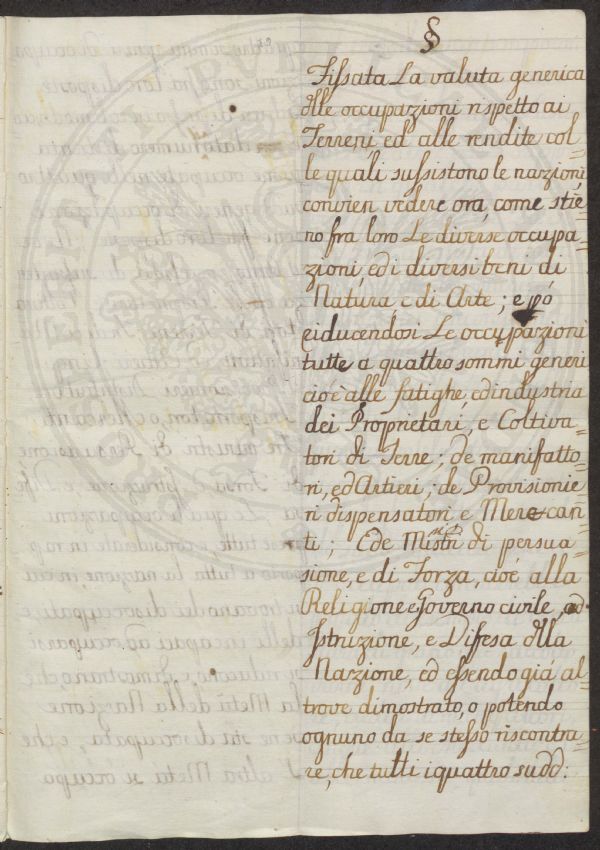 §
Fissata La valuta generica
dlle occupazioni rispetto ai
Terreni ed alle rendite col=
le quali sussistono le nazioni
convien vedere ora, come stie=
no fra loro Le diverse occupa=
zioni, ed i diversi beni di
Natura, e di Arte; e pò
riducendosi Le occupazioni
tutte a quattro sommi generi
cioè alle fatighe, ed industria
dei Proprietarj, e Coltiva=
tori di Terre; de manifatto=
ri, ed Artieri; de Provisionie=
ri dispensatori e Mercan=
ti; E de Mistri di persua=
sione, e di Forza, cioè alla
Religione e Governo civile, ad
Istruzione, e Difesa dlla
Nazione, ed essendo già al=
trove dimostrato, o potendo
ognuno da se stesso riscontra=
re, che tutti i quattro sudd: